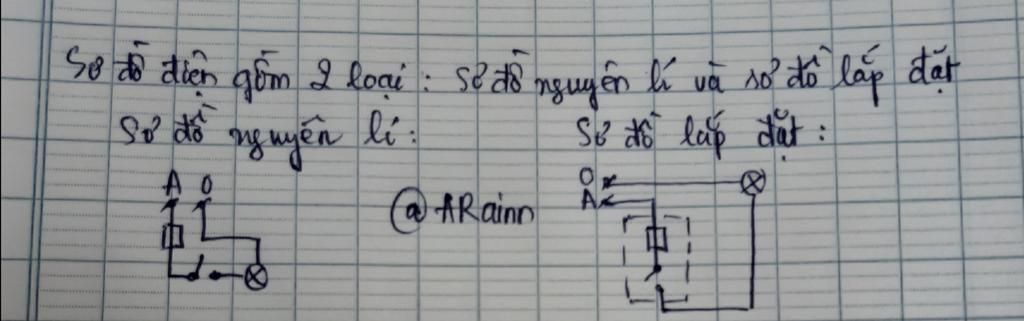 Sơ đồ điện gồm 2 loại: sơ đồ nguyên lí và sơ đồ lắp đặt
Sơ đồ nguyên lí: Sơ đồ lắp đặt:
A O
@ARainn
O
A